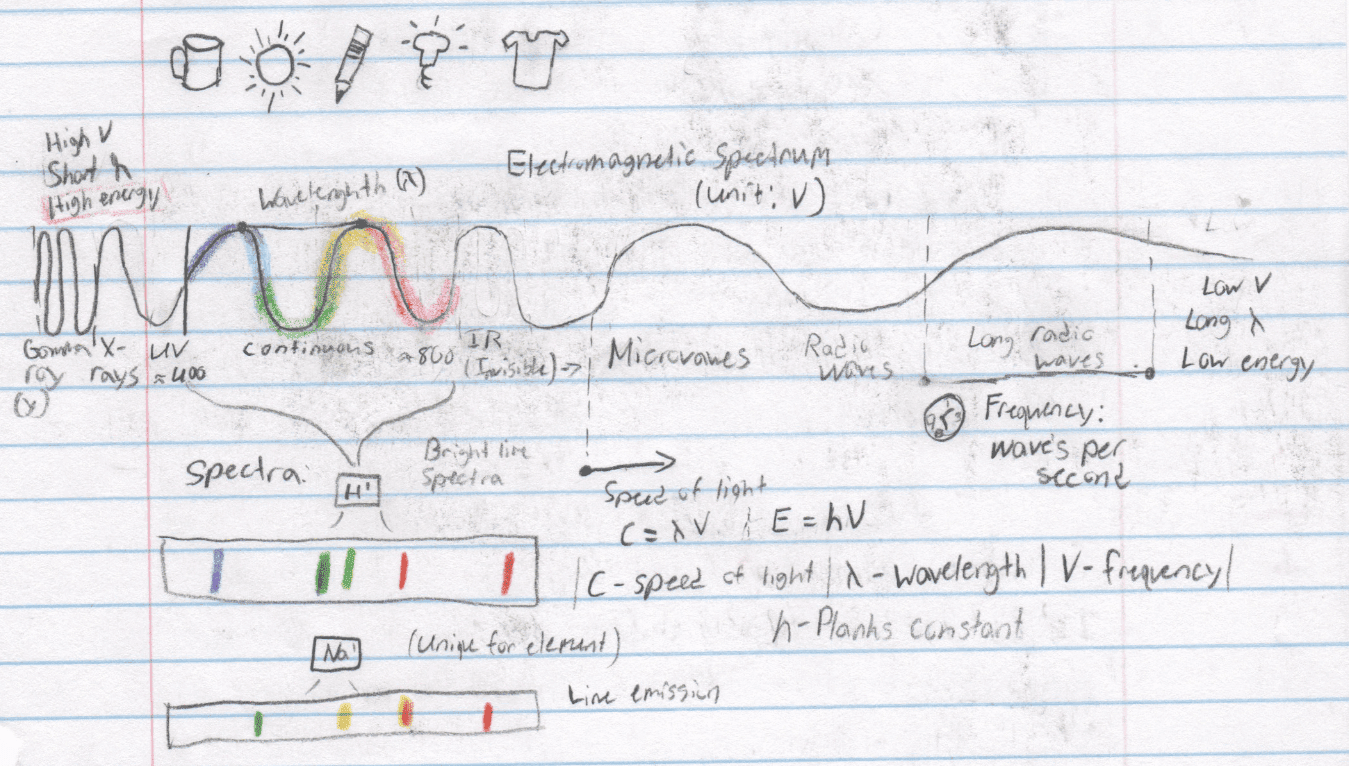 High V
Short λ
High energy
Wavelenghth (λ)
Electromagnetic Spectrum
(Unit: V)
Gamma
ray
(γ)
X-
rays
UV
≈ 400
Continuous
≈ 800
IR
(Invisible) ->
Microwaves
Radio
Waves
Long radio
waves
Low V
Long λ
Low energy
Frequency:
waves per
second
Spectra:
H'
Bright line
Spectra
Speed of light
C = λV
E = hV
C - speed of light | λ - wavelength | V - frequency |
h - Planks constant
Na'
(Unique for element)
Line emission